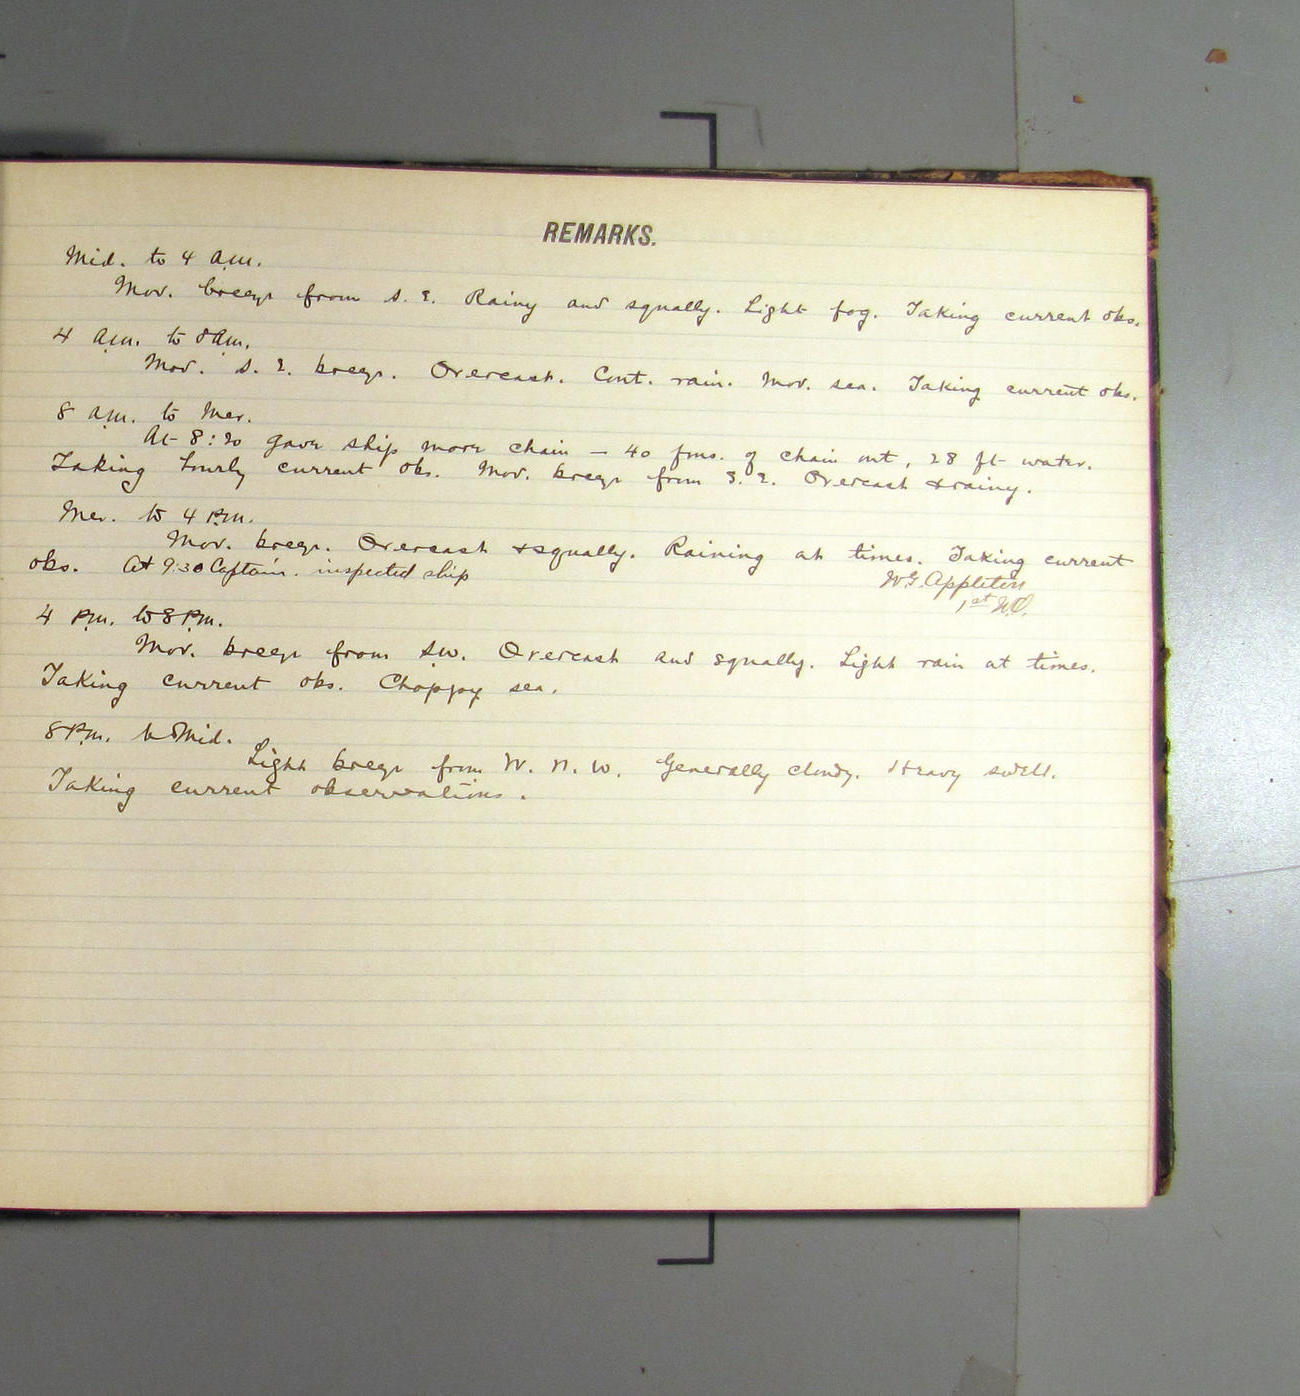 REMARKS.
Mid. to 4 a.m.
Mod. breeze from S. E. Rainy and squally. Light fog. Taking current obs.
4 a.m. to 8 a.m.
Mod. S. E. breeze. Overcast. Cont. rain. Mod. sea. Taking current obs.
8 a.m. to Mer.
At 8:20 gave ship more chain – 40 fms. of chain out, 28 ft water.
Taking hourly current obs. Mod. breeze from S. E. Overcast & rainy.
Mer. to 4 P.m.
Mod. breeze. Overcast & squally. Raining at times. Taking current
obs. At 9:30 Captain inspected ship
W.G. Appleton
1st W.O.
4 P.m. to 8 P.m.
Mod. breeze from S.W. Overcast and squally. Light rain at times.
Taking current obs. Choppy sea.
8 P.m. to Mid.
Light breeze from W. N. W. Generally cloudy. Heavy swell.
Taking current observations.